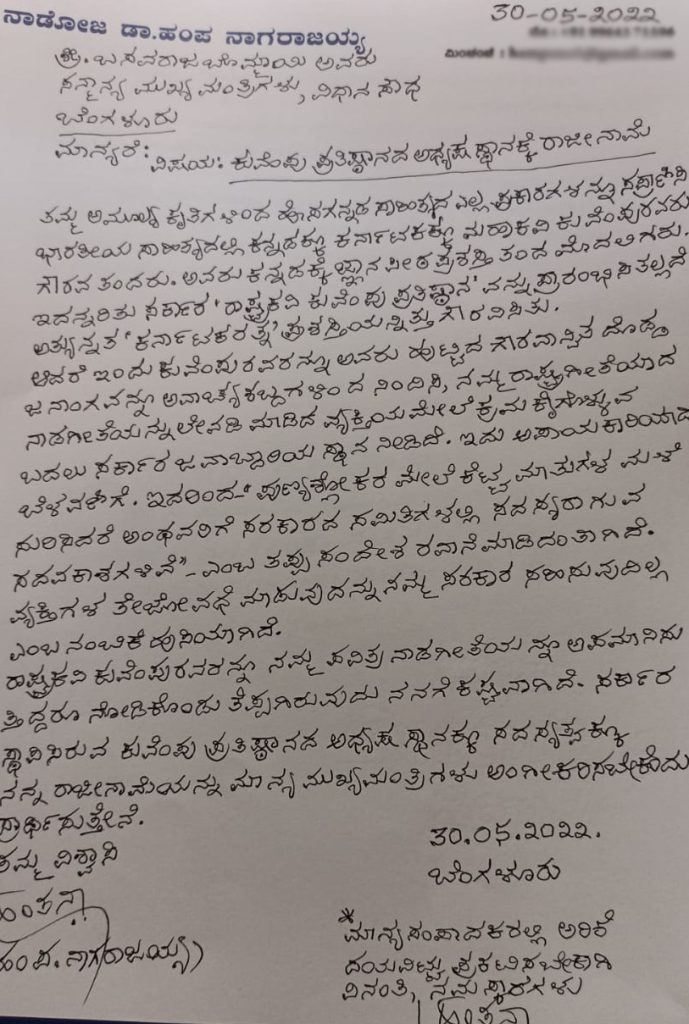 ನಾಡೋಜ ಡಾ.ಹಂಪ ನಾಗರಾಜಯ್ಯ
30-05-2022
ಶ್ರೀ. ಬಸವರಾಜ ಬೊಮ್ಮಾಯಿ ಅವರು
ಮಿಂಚಂಚೆ :
ಸನ್ಮಾನ್ಯ ಮುಖ್ಯ ಮಂತ್ರಿಗಳು, ವಿಧಾನ ಸೌಧ
ಬೆಂಗಳೂರು
ಮಾನ್ಯರೆ: ವಿಷಯ: ಕುವೆಂಪು ಪ್ರತಿಷ್ಠಾನದ ಅಧ್ಯಕ್ಷ ಸ್ಥಾನಕ್ಕೆ ರಾಜೀನಾಮೆ
ತಮ್ಮ ಅಮೂಲ್ಯ ಕೃತಿಗಳಿಂದ ಹೊಸಗನ್ನಡ ಸಾಹಿತ್ಯದ ಎಲ್ಲ ಪ್ರಕಾರಗಳನ್ನೂ ಸಪ್ರಾಣಿಸಿ
ಭಾರತೀಯ ಸಾಹಿತ್ಯದಲ್ಲಿ ಕನ್ನಡಕ್ಕೂ ಕರ್ನಾಟಕಕ್ಕೂ ಮಹಾಕವಿ ಕುವೆಂಪುರವರು
ಗೌರವ ತಂದರು. ಅವರು ಕನ್ನಡಕ್ಕೆ ಜ್ಞಾನ ಪೀಠ ಪ್ರಶಸ್ತಿ ತಂದ ಮೊದಲಿಗರು.
ಇದನ್ನರಿತು ಸರ್ಕಾರ 'ರಾಷ್ಟ್ರಕವಿ ಕುವೆಂಪು ಪ್ರತಿಷ್ಠಾನ' ವನ್ನು ಪ್ರಾರಂಭಿಸಿತಲ್ಲದೆ
ಅತ್ಯುನ್ನತ 'ಕರ್ನಾಟಕರತ್ನ' ಪ್ರಶಸ್ತಿಯನ್ನಿತ್ತು ಗೌರವಿಸಿತು.
ಆದರೆ ಇಂದು ಕುವೆಂಪುರವರನ್ನೂ ಅವರು ಹುಟ್ಟಿದ ಗೌರವಾನ್ವಿತ ದೊಡ್ಡ
ಜನಾಂಗವನ್ನೂ ಅವಾಚ್ಯಶಬ್ದಗಳಿಂದ ನಿಂದಿಸಿ, ನಮ್ಮ ರಾಷ್ಟ್ರಗೀತೆಯಾದ
ನಾಡಗೀತೆಯನ್ನು ಲೇವಡಿ ಮಾಡಿದ ವ್ಯಕ್ತಿಯ ಮೇಲೆ ಕ್ರಮ ಕೈಗೊಳ್ಳುವ
ಬದಲು ಸರ್ಕಾರ ಜವಾಬ್ದಾರಿಯ ಸ್ಥಾನ ನೀಡಿದೆ. ಇದು ಅಪಾಯಕಾರಿಯಾದ
ಬೆಳವಣಿಗೆ. ಇದರಿಂದ-"ಪುಣ್ಯಶ್ಲೋಕರ ಮೇಲೆ ಕೆಟ್ಟ ಮಾತುಗಳ ಮಳೆ
ಸುರಿಸಿದರೆ ಅಂಥವರಿಗೆ ಸರಕಾರದ ಸಮಿತಿಗಳಲ್ಲಿ ಸದಸ್ಯರಾಗುವ
ಸದವಕಾಶಗಳಿವೆ"-ಎಂಬ ತಪ್ಪು ಸಂದೇಶ ರವಾನೆ ಮಾಡಿದಂತಾಗಿದೆ.
ವ್ಯಕ್ತಿಗಳ ತೇಜೋವಧೆ ಮಾಡುವುದನ್ನು ನಮ್ಮ ಸರಕಾರ ಸಹಿಸುವುದಿಲ್ಲ
ಎಂಬ ನಂಬಿಕೆ ಹುಸಿಯಾಗಿದೆ.
ರಾಷ್ಟ್ರಕವಿ ಕುವೆಂಪುರವರನ್ನೂ ನಮ್ಮ ಪವಿತ್ರ ನಾಡಗೀತೆಯನ್ನೂ ಅಪಮಾನಿಸು
ತ್ತಿದ್ದರೂ ನೋಡಿಕೊಂಡು ತೆಪ್ಪಗಿರುವುದು ನನಗೆ ಕಷ್ಟವಾಗಿದೆ. ಸರ್ಕಾರ
ಸ್ಥಾಪಿಸಿರುವ ಕುವೆಂಪು ಪ್ರತಿಷ್ಠಾನದ ಅಧ್ಯಕ್ಷ ಸ್ಥಾನಕ್ಕೂ ಸದಸ್ಯತ್ವಕ್ಕೂ
ನನ್ನ ರಾಜೀನಾಮೆಯನ್ನು ಮಾನ್ಯ ಮುಖ್ಯಮಂತ್ರಿಗಳು ಅಂಗೀಕರಿಸಬೇಕೆಂದು
ಪ್ರಾರ್ಥಿಸುತ್ತೇನೆ.
30.05.2022.
ತಮ್ಮ ವಿಶ್ವಾಸಿ
ಬೆಂಗಳೂರು
ಹಂಪನಾ
(ಹಂಪ. ನಾಗರಾಜಯ್ಯ)
*ಮಾನ್ಯ ಸಂಪಾದಕರಲ್ಲಿ ಅರಿಕೆ
ದಯವಿಟ್ಟು ಪ್ರಕಟಿಸಬೇಕಾಗಿ
ವಿನಂತಿ, ನಮಸ್ಕಾರಗಳು
ಹಂಪನಾ